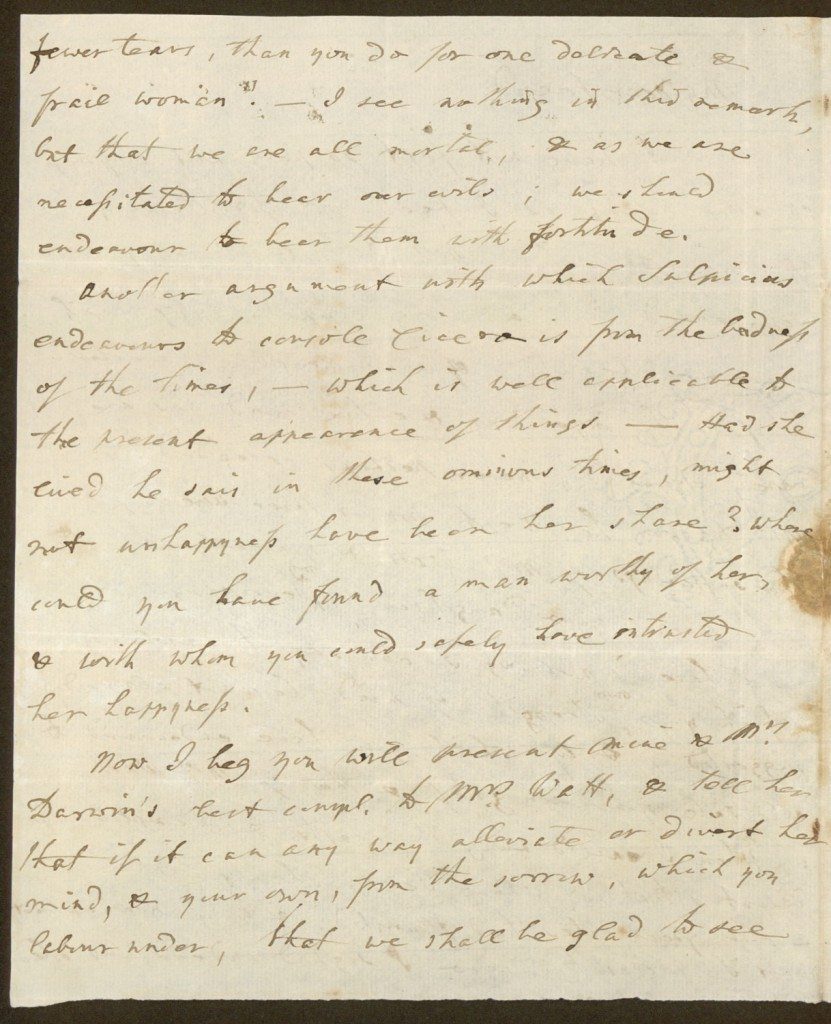 fewer tears, than you do for one delicate &
frail woman". — I see nothing in this remark,
but that we are all mortal, & as we are
necessitated to bear our evils; we should
endeavour to bear them with fortitude.
Another argument with which Sulpicius
endeavours to console Cicero is from the badness
of the times, — which is well applicable to
the present appearance of things — Had she
lived he sais in these ominous times, might
not unhappyness have been her share? where
could you have found a man worthy of her,
& with whom you could safely have intrusted
her happyness.
Now I beg you will present mine & Mrs
Darwin's best compl. to Mrs Watt, & tell her
that if it can any way alleviate or divert her
mind, & your own, from the sorrow, which you
labour under, that we shall be glad to see